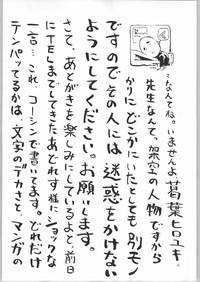 …なんてね。いませんよ、葛葉ヒロユキ。
先生なんて。架空の人物ですから
かりにどこかにいたとしても別モノ
ですのでその人には迷惑をかけない
ようにしてください。お願いします。
さて、あとがきを楽しみにしているよと、前日
にTELまでしてきたあどれす様にショックな
一言…これ、コーシンで書いてます。どれだけ
テンパッてるかは、文字のデカさと、マンガの